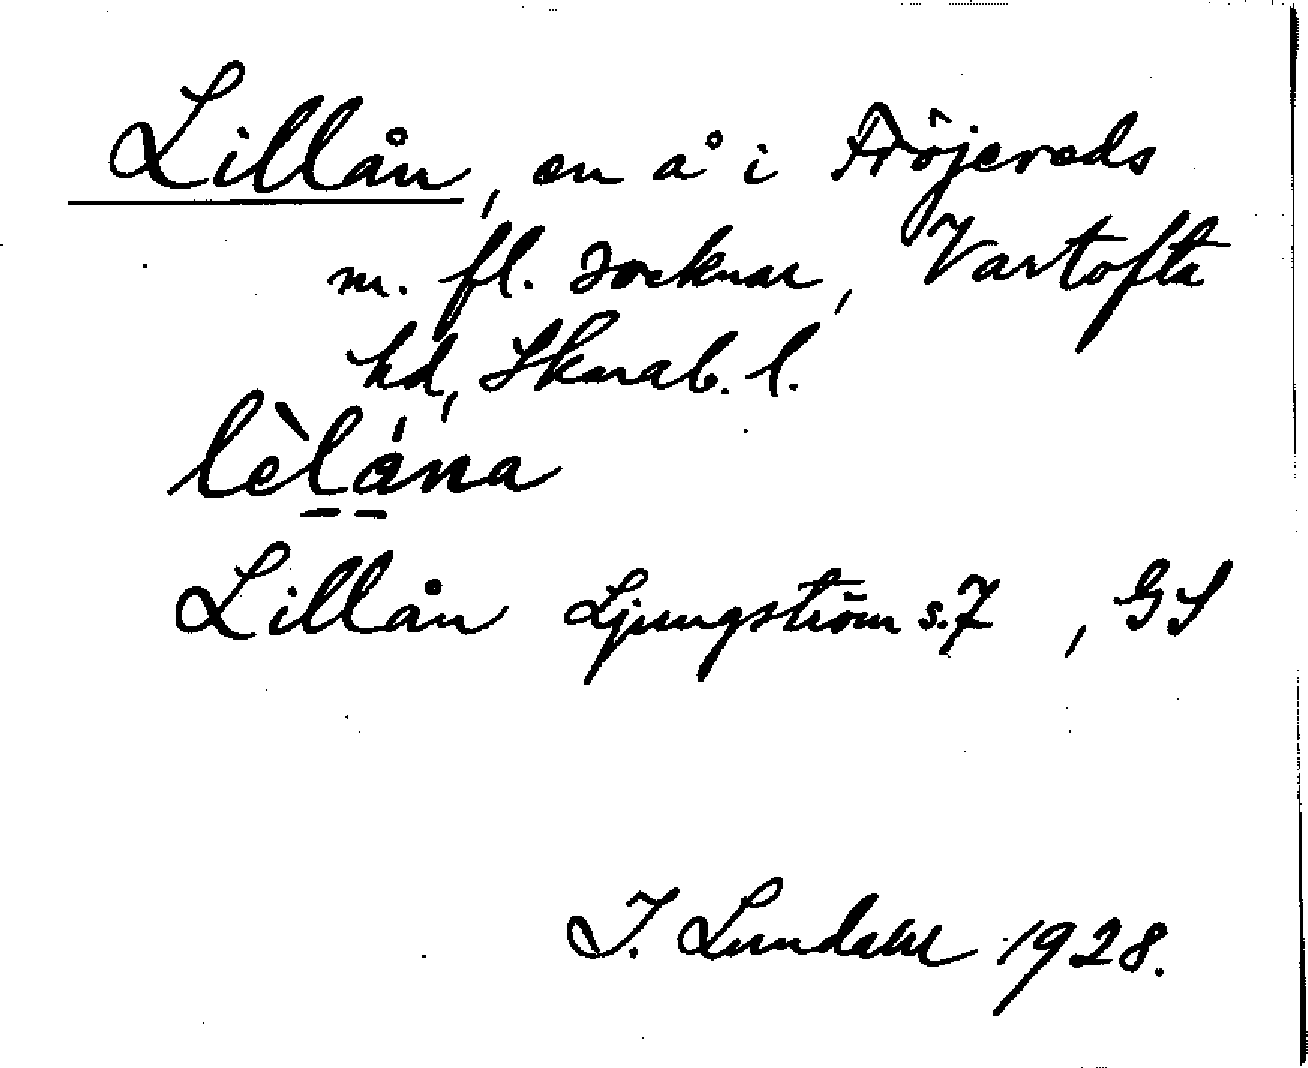 Lillån, en å i Fröjereds
m. fl. socknar, Vartofta
hd, Skarab. l.
lèlána
Lillån Ljungström s. 7, GS
I. Lundahl 1928.